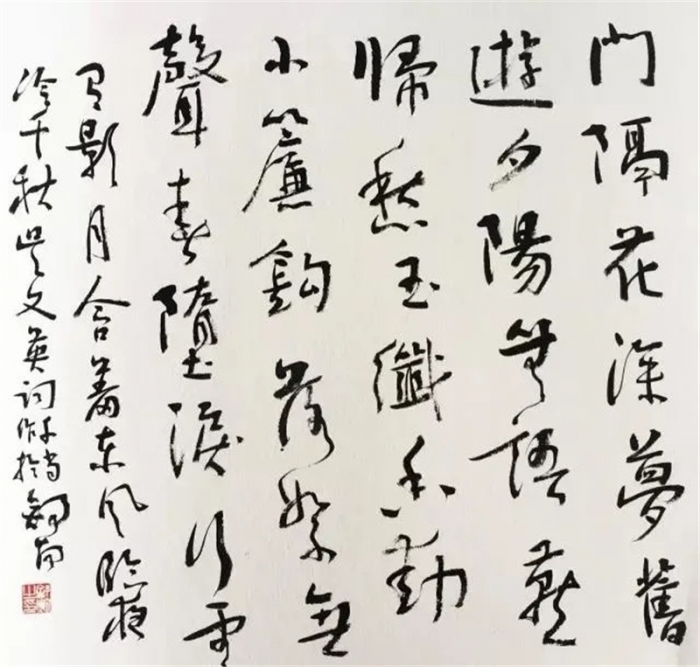 門隔花深夢舊
遊夕陽無語燕
歸愁玉纖香動
小簾鈎落絮無
聲春墮淚行雲
有影月含羞東風臨夜
冷于秋吳文英詞